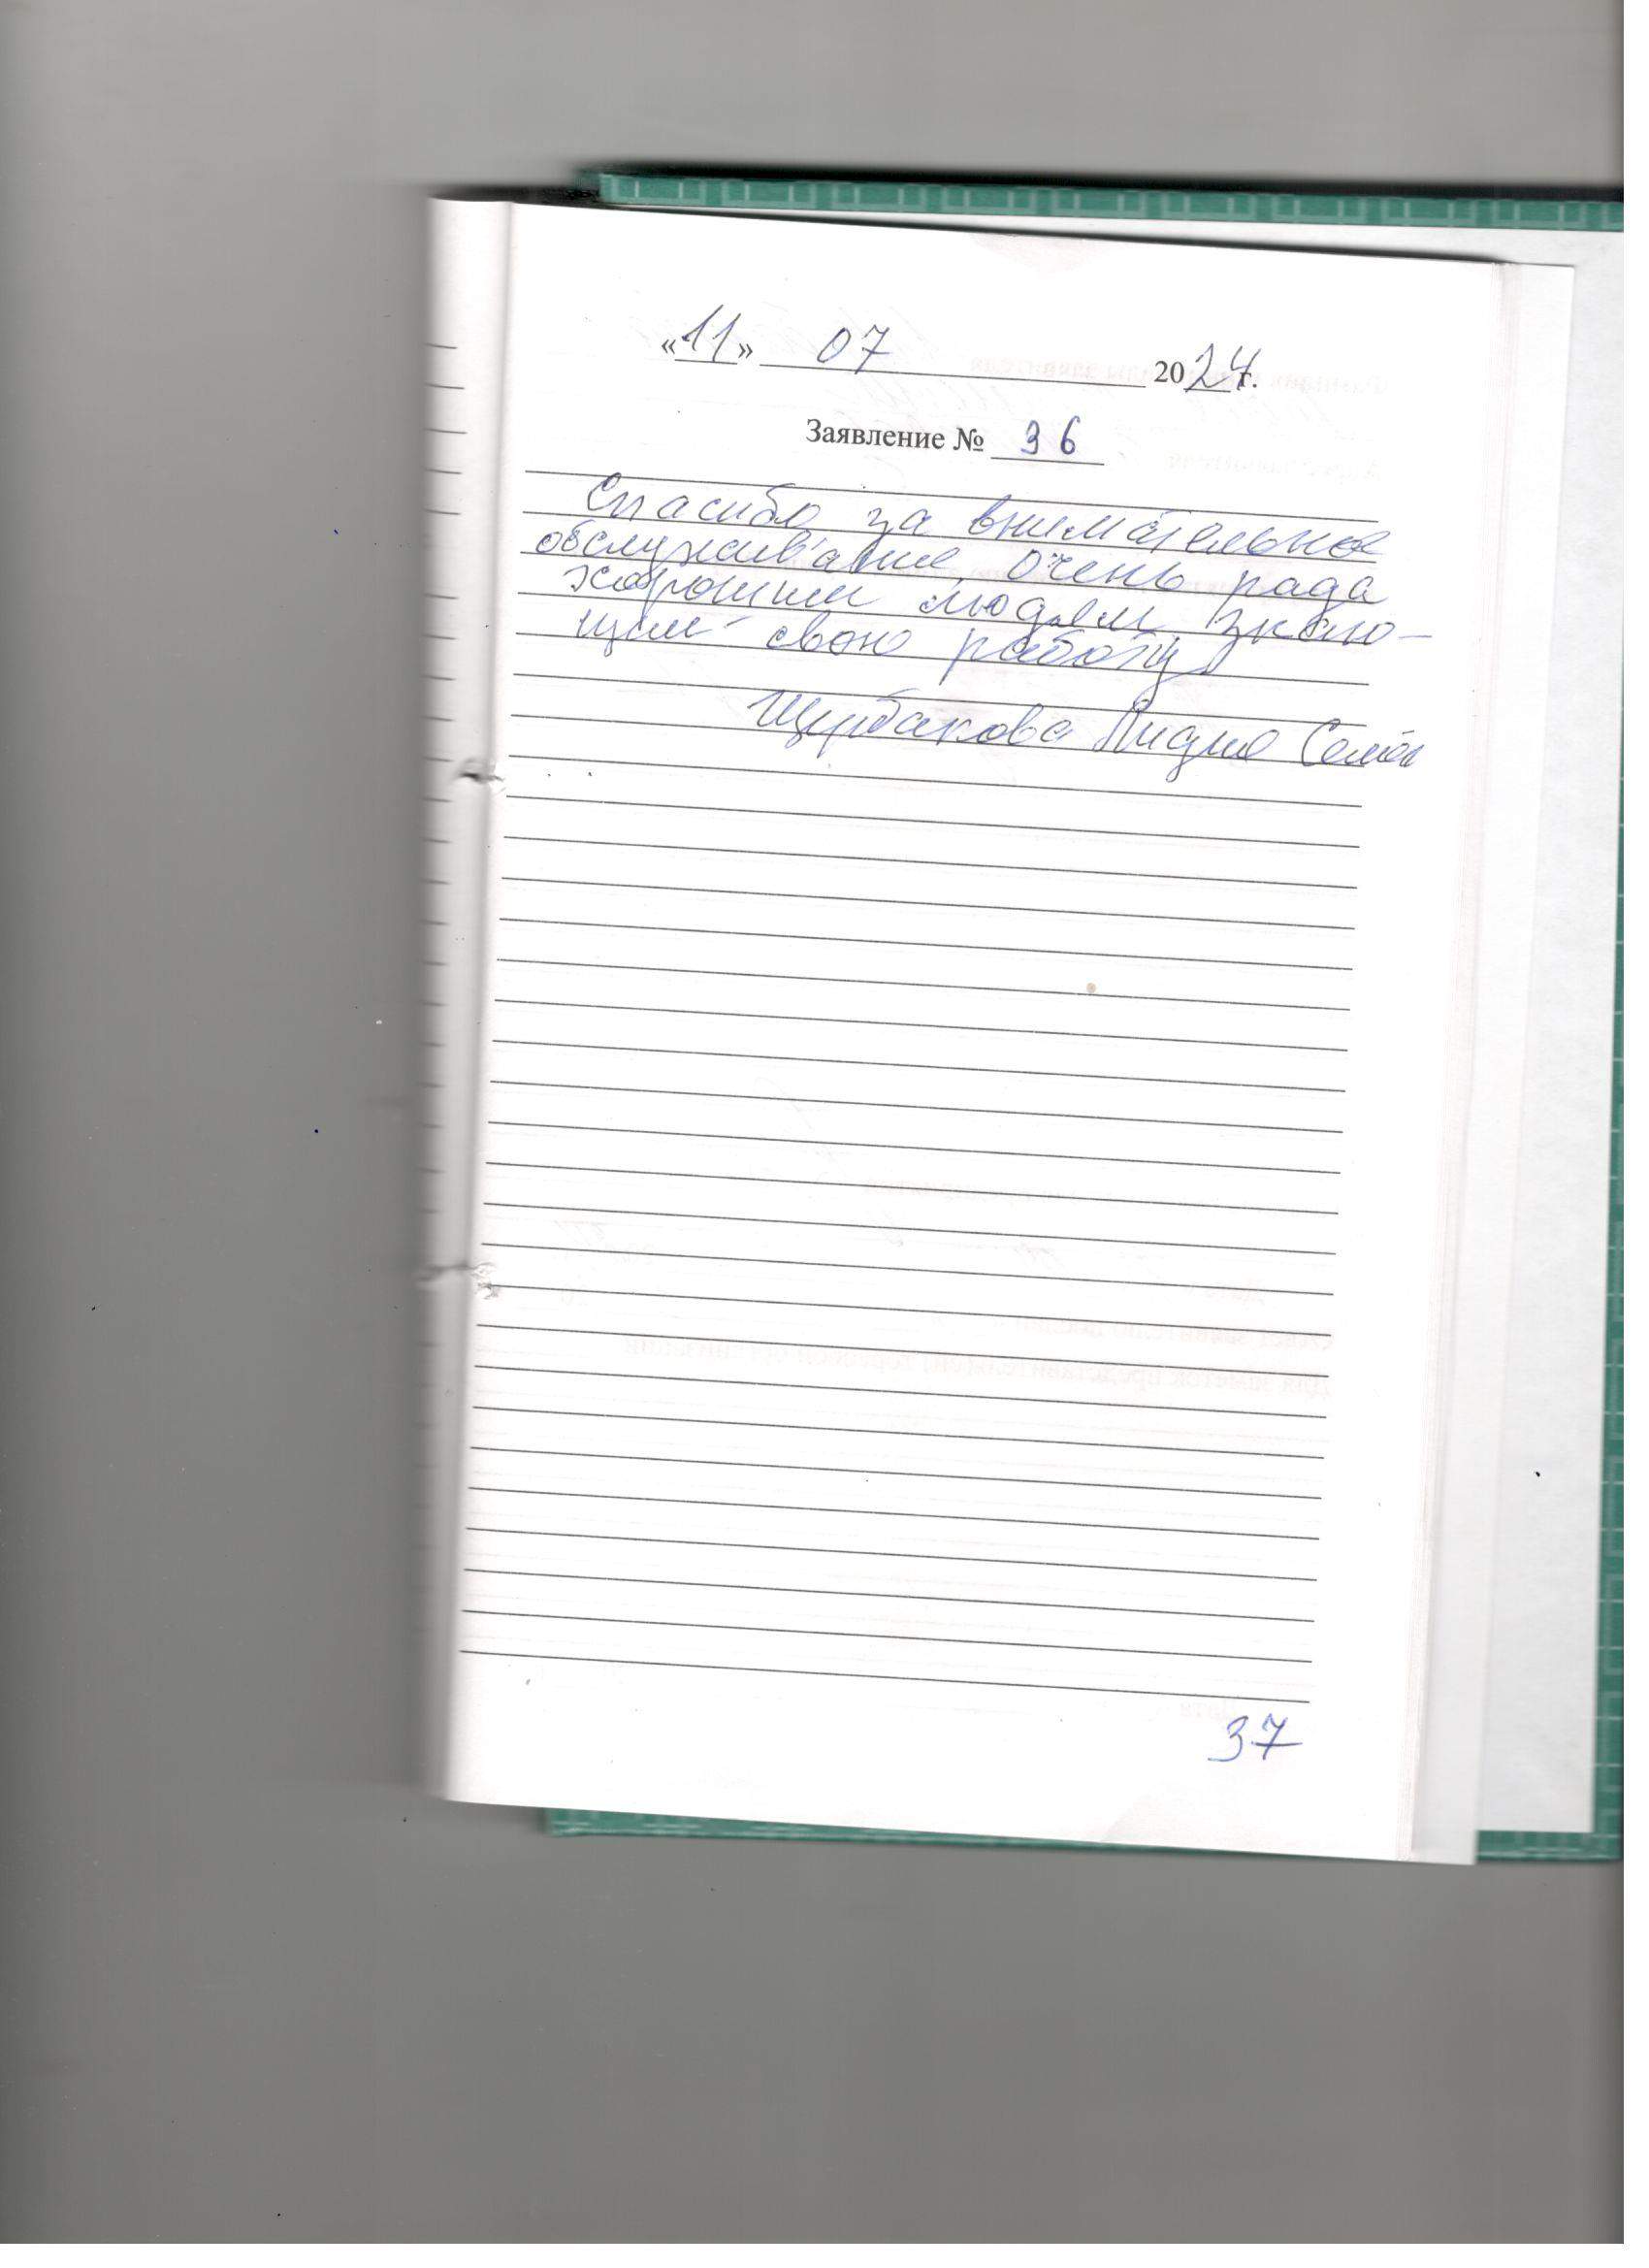 «11» 07 2024 г.
Заявление № 36
Спасибо за внимательное
обслуживание, очень рада
хорошим людям знаю-
щим свою работу
Щербакова Лидия Семён
37